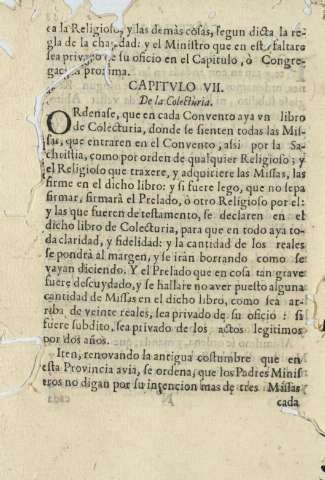 ca la Religiosо, y las demàs cosas, segun dicta la re-
gla de la charidad: y el Ministro que en esto faltare
sea privado de su oficio en el Capitulo, ò Congre-
gacion proxima.
CAPITVLO VII.
De la Colecturia.
ORdenase, que en cada Convento aya vn libro
de Colecturia, donde se sienten todas las Mis-
sas, que entraren en el Convento, assi por la Sa-
christia, como por orden de qualquier Religioso; y
el Religioso que traxere, y adquiriere las Missas, las
firme en el dicho libro: y si fuere lego, que no sepa
firmar, firmarà el Prelado, ò otro Religioso por el:
y las que fueren de testamento, se declaren en el
dicho libro de Colecturia, para que en todo aya to-
da claridad, y fidelidad: y la cantidad de los reales
se pondrà al margen, y se iràn borrando como se
vayan diciendo. Y el Prelado que en cosa tan grave
fuere descuydado, y se hallare no aver puesto alguna
cantidad de Missas en el dicho libro, como sea ar-
riba de veinte reales, sea privado de su oficio: si
fuere subdito, sea privado de los actos legitimos
por dos años.
Iten, renovando la antigua costumbre que en
esta Provincia avia, se ordena, que los Padres Minis-
tros no digan por su intencion mas de tres Missas
cada